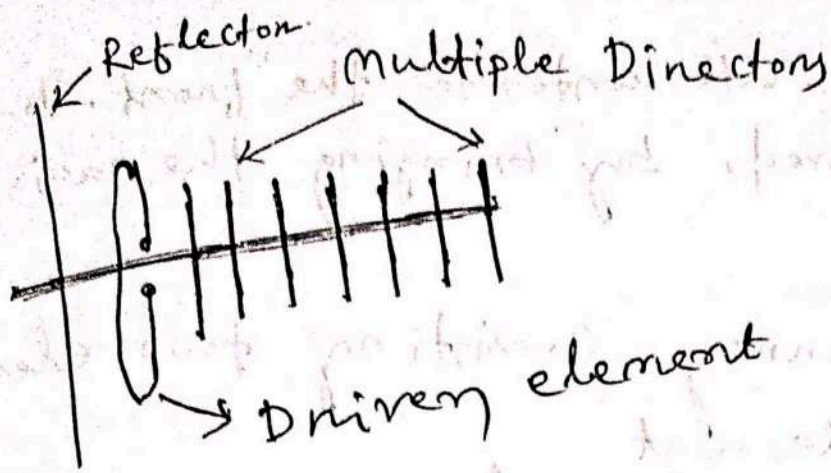 Reflector
Multiple Directors
Driven element